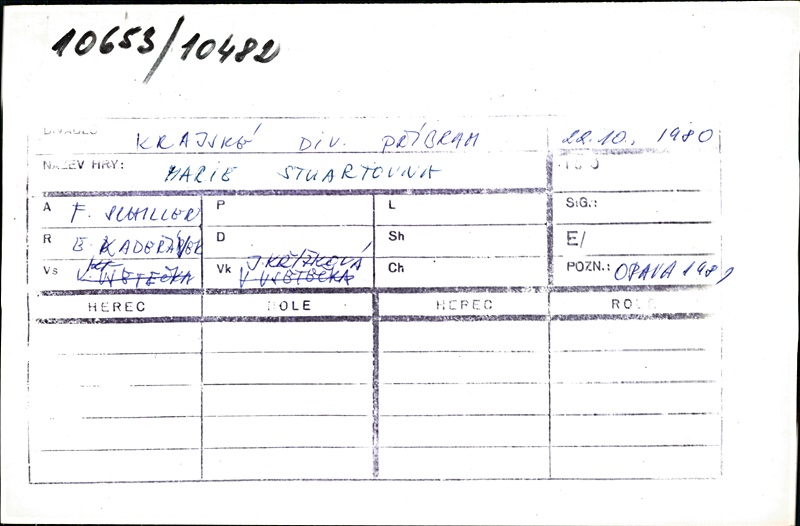 10653/10482
DIVADLO KRAJSKÉ DIV. PŘÍBRAM 22.10. 1980
NÁZEV HRY: MARIE STUARTOVNA
A F. SCHILLER P L SIG.:
R E. KADEŘÁVEK D Sh E/
Vs V. VŠETEČKA Vk J. KŘÍŽKOVÁ V VŠETEČKA Ch POZN.: OPAVA 1981
HEREC ROLE HEREC ROLE